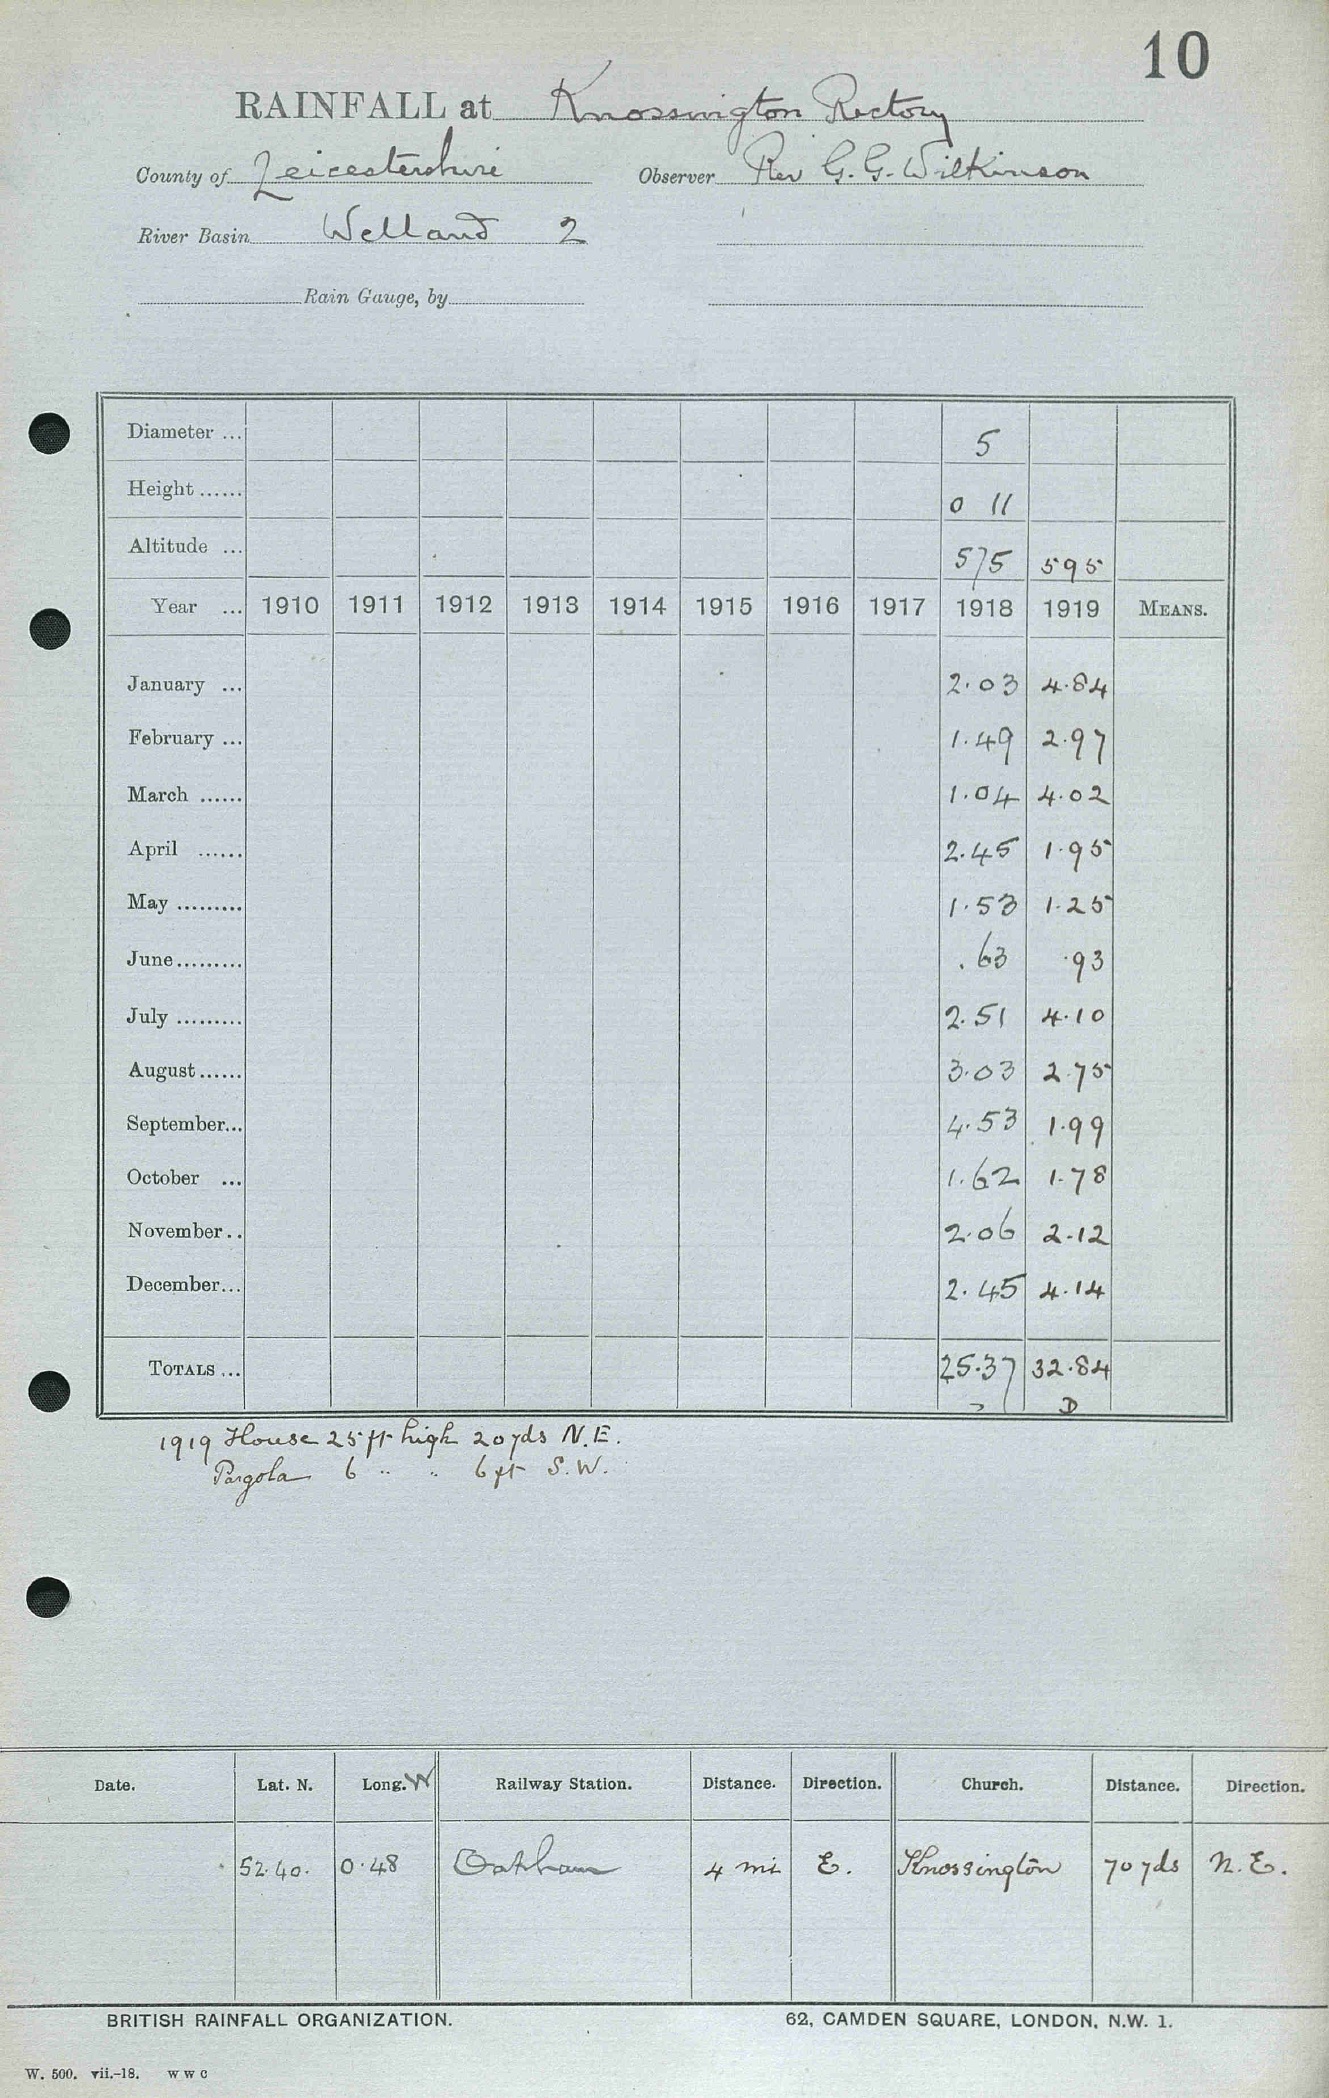 10
RAINFALL at Knossington Rectory
County of Leicestershire Observer Rev G. G. Wilkinson
River Basin Welland 2
Rain Gauge, by
Diameter ... 5
Height ...... 0 11
Altitude ... 575 595
Year ... 1910 1911 1912 1913 1914 1915 1916 1917 1918 1919 MEANS.
January ... 2.03 4.84
February ... 1.49 2.97
March ...... 1.04 4.02
April ...... 2.45 1.95
May ......... 1.53 1.25
June ......... .63 .93
July ......... 2.51 4.10
August ...... 3.03 2.75
September... 4.53 1.99
October ... 1.62 1.78
November.. 2.06 2.12
December... 2.45 4.14
TOTALS ... 25.37 32.84
D
1919 House 25 ft high 20 yds N.E.
Pargola 6 " " 6 ft S.W.
Date. Lat. N. Long. W Railway Station. Distance. Direction. Church. Distance. Direction.
52.40. 0.48 Oakham 4 mi E. Knossington 70 yds N.E.
BRITISH RAINFALL ORGANIZATION. 62, CAMDEN SQUARE, LONDON, N.W. 1.
W. 500. vii.-18. W W C